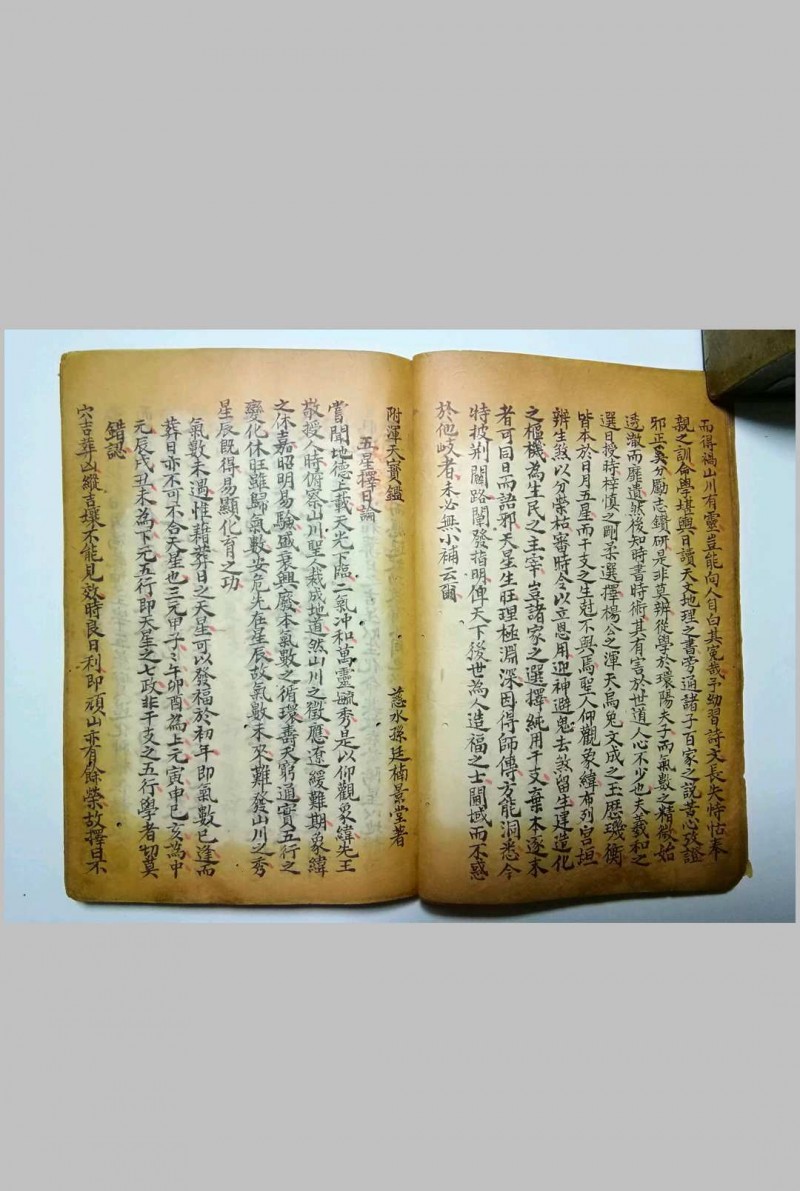 而得禍山川有靈豈能向人自白其冤哉予幼習詩文長失恃怙奉
親之訓命學堪輿日讀天文地理之書旁通諸子百家之說苦心攷證
邪正奚分勵志鑽研是非莫辨從學於環陽夫子而氣數之精微始
透澈而靡遺然後知時書時術其有害於世道人心不少也夫羲和之
選日授時梓慎之剛柔選擇楊公之渾天烏兔文成之玉歷璣衡
皆本於日月五星而干支之生尅不與焉聖人仰觀象緯布列宮垣
辨生煞以分榮枯審時令以立恩用迎神避鬼去煞留生建造化
之樞機為生民之主宰豈諸家之選擇純用干支棄本逐末
者可同日而語邪天星生旺理極淵深因得師傳方能洞悉今
特披剔闢路闡發指明俾天下後世為人造福之士閫域而不惑
於他岐者未必無小補云爾
附渾天寶鑑
慈水孫廷楠景堂著
五星擇日論
嘗聞地德上載天光下臨二氣沖和萬靈毓秀是以仰觀象緯先王
敬授人時俯察山川聖人裁成地道然山川之徵應遼緩難期象緯
之休嘉昭明易驗盛衰興廢本氣數之循環壽夭窮通實五行之
變化休旺雖歸氣數安危先在星辰故氣數未來難發山川之秀
星辰既得易顯化育之功
氣數未遇惟藉葬日之天星可以發福於初年即氣數已逢而
葬日亦不可不合天星也三元甲子子午卯酉為上元寅申巳亥為中
元辰戌丑未為下元五行即天星之七政非干支之五行學者切莫
錯認
穴吉葬凶縱吉壤不能見效時良日利即頑山亦有餘榮故擇日不